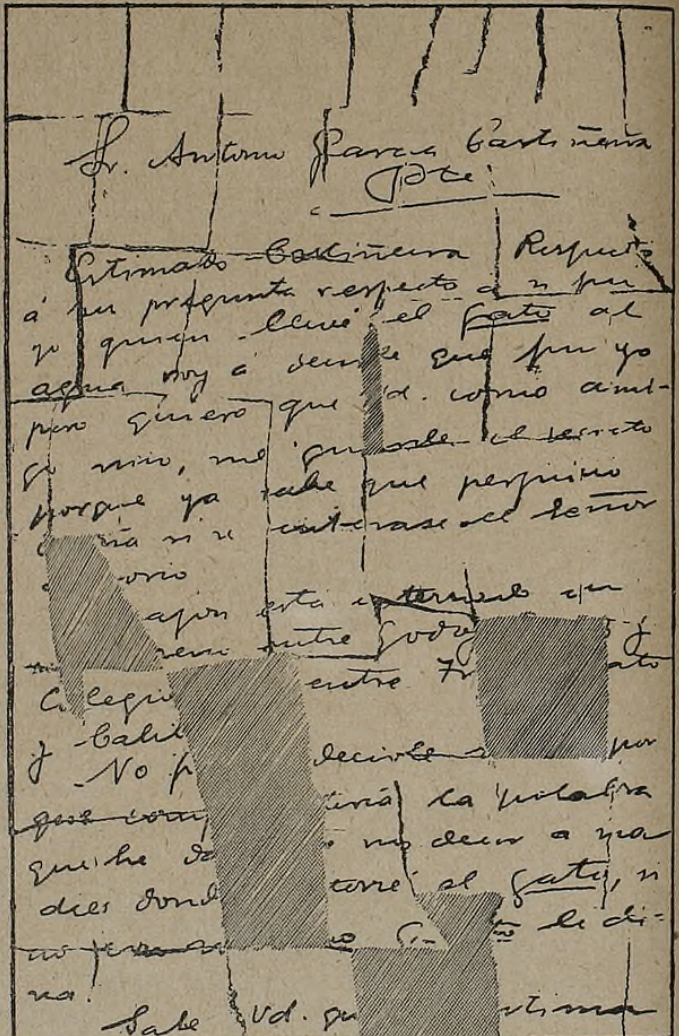 Sr. Antonio Garcia Castiñeira
Pte
Estimado Castiñeira Respecto
á su pregunta respecto a si fui
yo quien llevé el gato al
agua voy á decirle que fui yo
pero quiero que Vd. como ami-
go mio, me guarde el secreto
porque ya sabe que perjuicio
si se enterase el Señor
orio
ajon está enterrado en
entre Godoy y
Colegio entre ato
y Cabil
No p decirle por
que comp tiria la palabra
que he da no decir a na
dies dond torré el gato, si
no le di-
ria.
Sabe Vd. qu stima